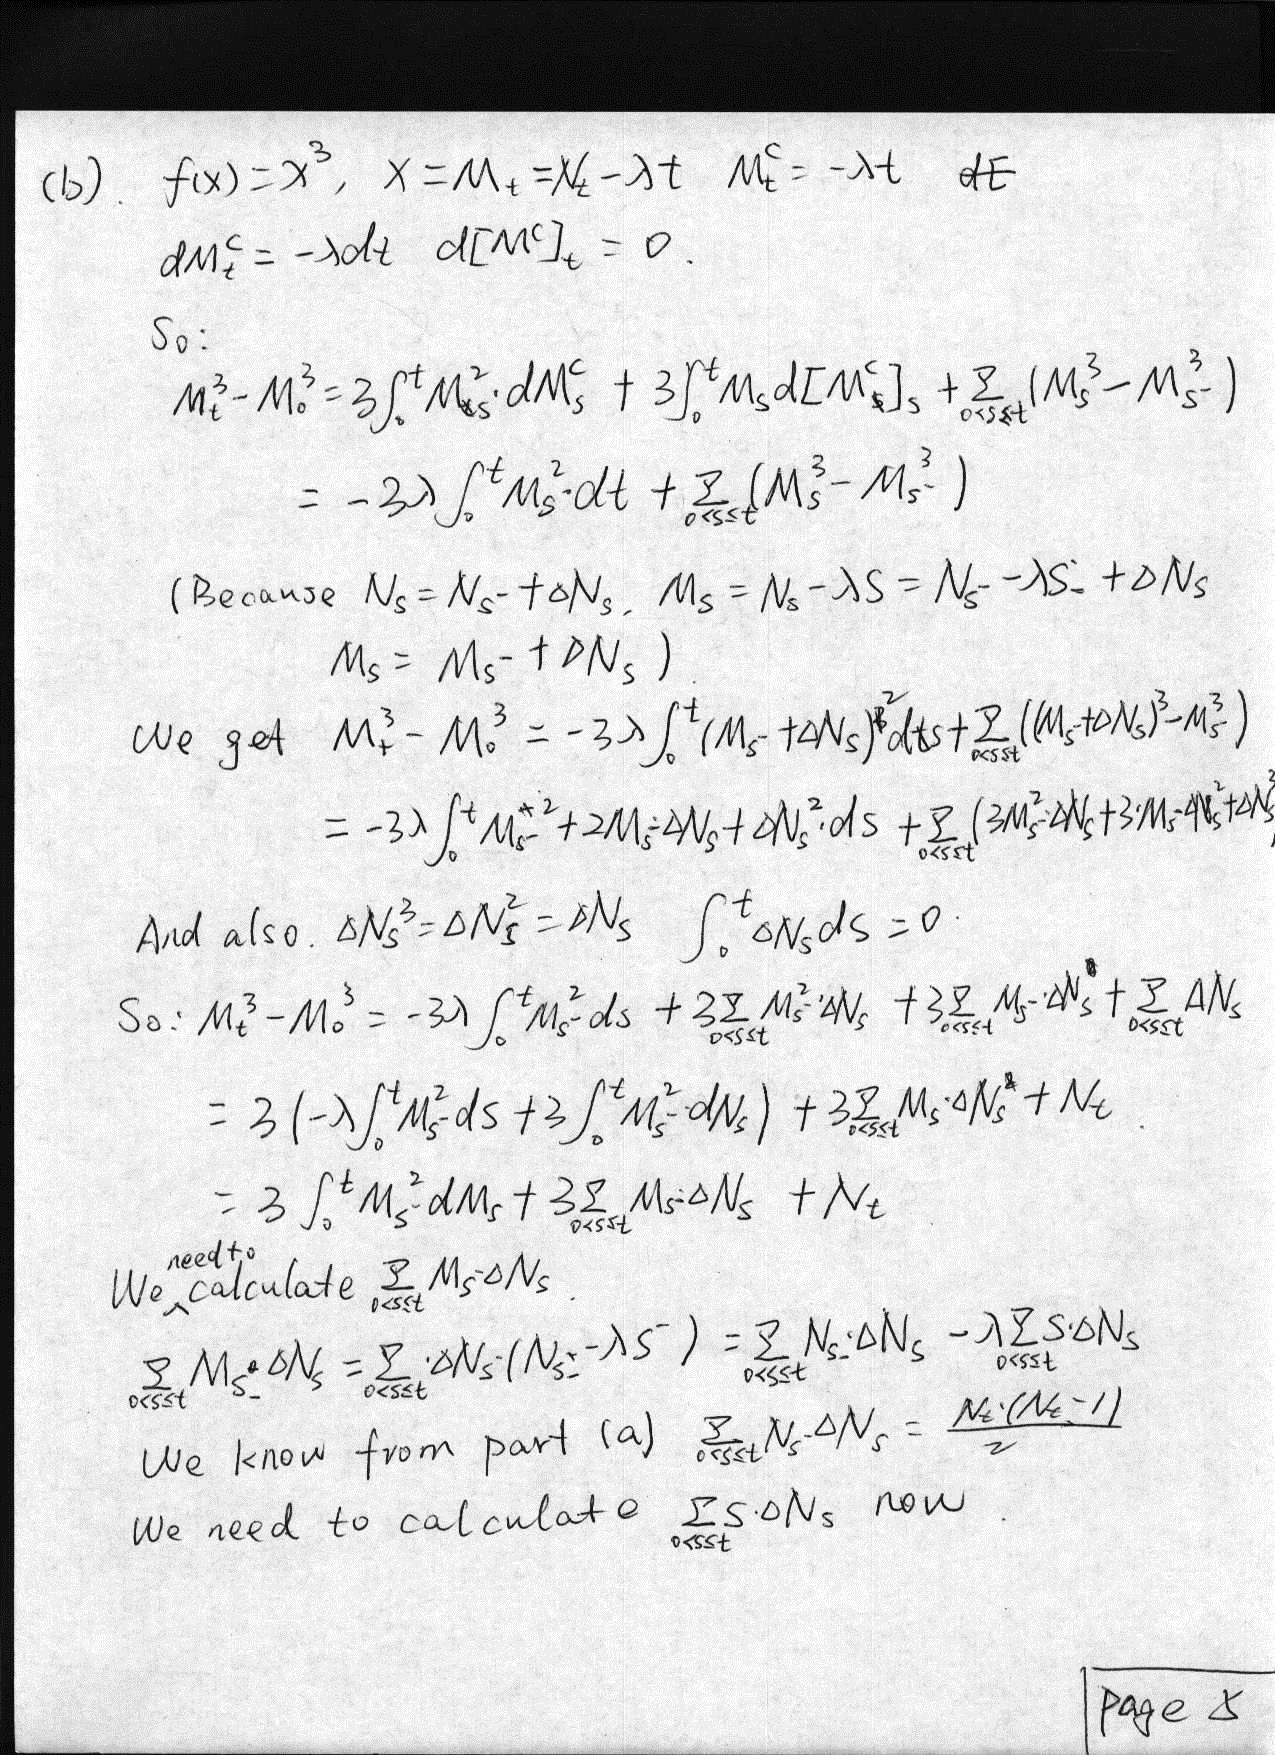 (b). f(x) = x³, x = M_t = N_t - λt M_t^c = -λt
dM_t^c = -λdt d[M^c]_t = 0.
So:
M_t³ - M_0³ = 3∫_0^t M_s²·dM_s^c + 3∫_0^t M_s d[M^c]_s + Σ_{0<s≤t} (M_s³ - M_{s-}³)
= -3λ ∫_0^t M_s²·dt + Σ_{0<s≤t} (M_s³ - M_{s-}³)
(Because N_s = N_{s-} + ΔN_s, M_s = N_s - λs = N_{s-} - λs- + ΔN_s
M_s = M_{s-} + ΔN_s).
We get M_t³ - M_0³ = -3λ ∫_0^t (M_{s-} + ΔN_s)² ds + Σ_{0<s≤t} ((M_{s-} + ΔN_s)³ - M_{s-}³)
= -3λ ∫_0^t M_{s-}² + 2M_{s-}·ΔN_s + ΔN_s²·ds + Σ_{0<s≤t} (3M_{s-}²·ΔN_s + 3·M_{s-}·ΔN_s² + ΔN_s³)
And also. ΔN_s³ = ΔN_s² = ΔN_s ∫_0^t ΔN_s ds = 0.
So: M_t³ - M_0³ = -3λ ∫_0^t M_{s-}² ds + 3Σ_{0<s≤t} M_{s-}²·ΔN_s + 3Σ_{0<s≤t} M_{s-}·ΔN_s + Σ_{0<s≤t} ΔN_s
= 3 (-λ∫_0^t M_{s-}² ds + 3∫_0^t M_{s-}²·dN_s) + 3Σ_{0<s≤t} M_{s-}·ΔN_s + N_t.
= 3 ∫_0^t M_{s-}² dM_s + 3Σ_{0<s≤t} M_{s-}·ΔN_s + N_t
We need to calculate Σ_{0<s≤t} M_{s-}ΔN_s.
Σ_{0<s≤t} M_{s-}·ΔN_s = Σ_{0<s≤t} ·ΔN_s·(N_{s-} - λs⁻) = Σ_{0<s≤t} N_{s-}·ΔN_s - λΣ_{0<s≤t} s·ΔN_s
We know from part (a) Σ_{0<s≤t} N_{s-}ΔN_s = N_t·(N_t - 1)/2
We need to calculate Σ_{0<s≤t} s·ΔN_s now.
page 5